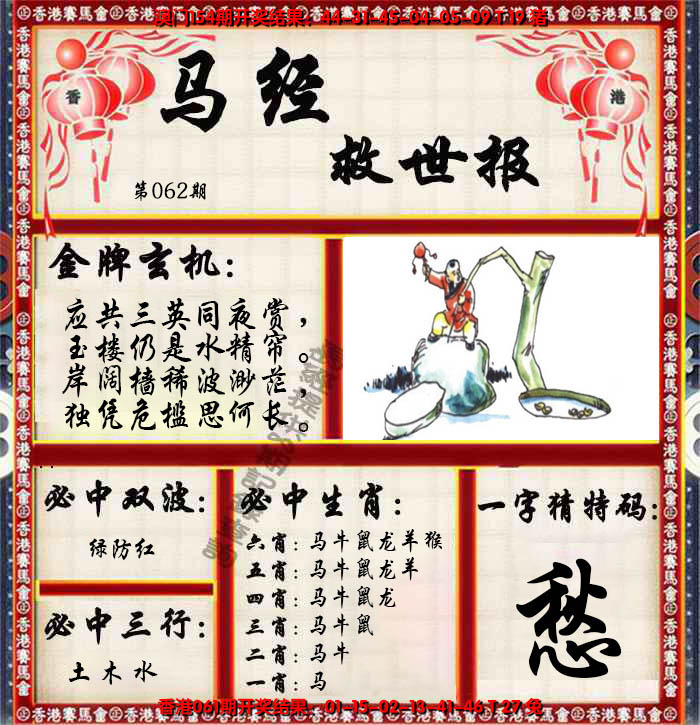 澳门154期开奖结果：44-31-45-04-05-09 T 19 猪
香 港
马经
救世报
第062期
金牌玄机：
应共三英同夜赏，
玉楼仍是水精帘。
岸阔樯稀波渺茫，
独凭危槛思何长。
必中双波：
绿防红
必中三行：
土木水
必中生肖：
六肖：马牛鼠龙羊猴
五肖：马牛鼠龙羊
四肖：马牛鼠龙
三肖：马牛鼠
二肖：马牛
一肖：马
一字猜特码：
愁
香港061期开奖结果：01-15-02-13-41-46 T 27 兔
香港賽馬會